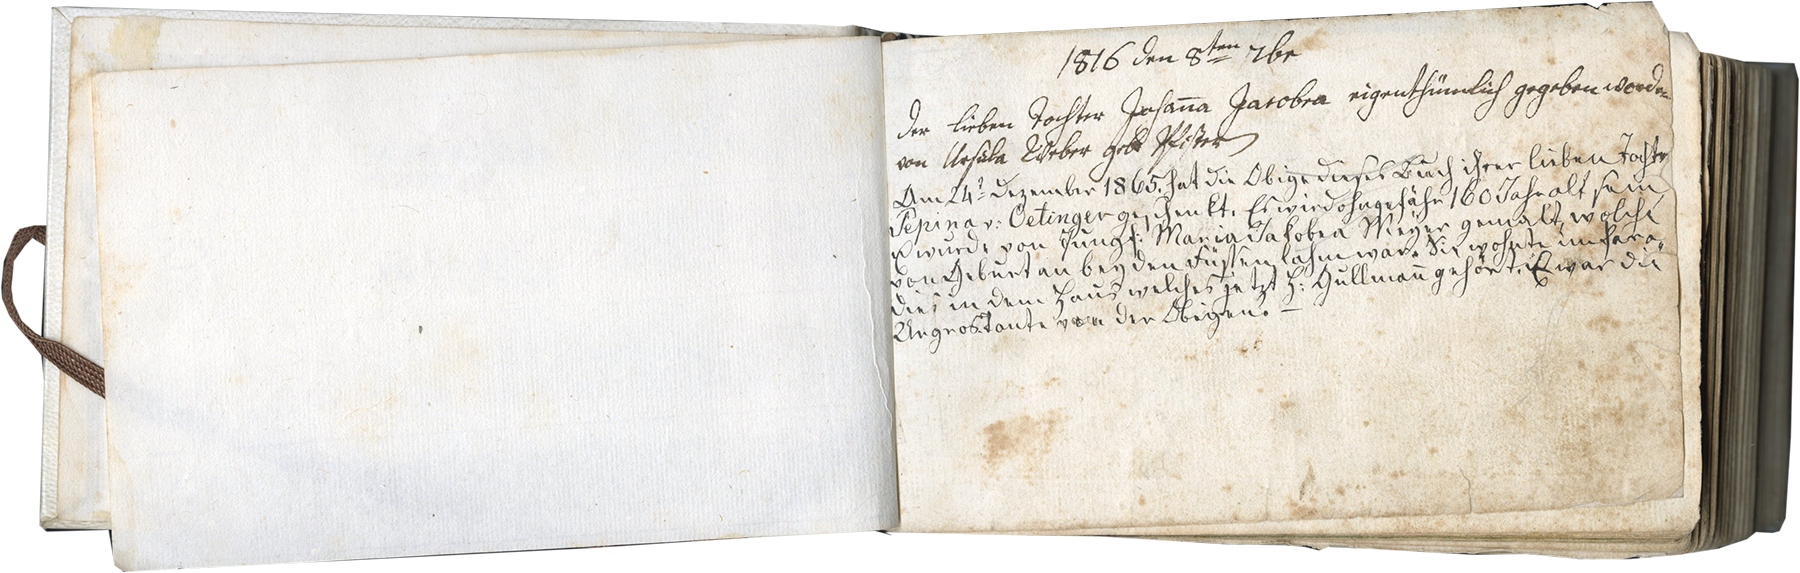 1816 den 8ten 7br
der lieben Tochter Johanna Jacobea eigenthümlich gegeben worden
von Ursula Weber geb Pfister
Am 24t Dezember 1865. hat die Obige dieses Buch ihrer lieben Tochter
Pepina v: Oetinger geschenkt. Es wird ohngefähr 160 Jahr alt sein
Es wurde von Jungf: Maria Jakobea Meyer gemalt, welche
von Geburt an bey den Füssen lahm war. Sie wohnte im Para„
dies in dem Haus welches jetzt H: Hüllmann gehört. Es war die
Urgrostante von der Obigen. —